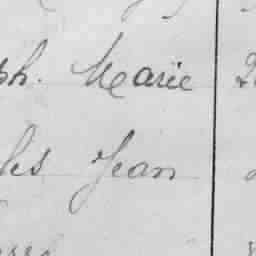 ph. Marie
les Jean